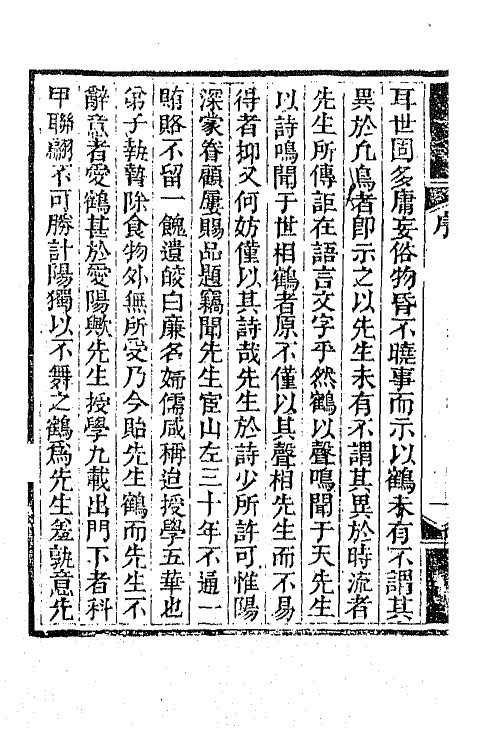 序
耳世固多庸妄俗物昏不曉事而示以鶴未有不謂其
異於凡鳥者卽示之以先生未有不謂其異於時流者
先生所傳詎在語言文字乎然鶴以聲鳴聞于天先生
以詩鳴聞于世相鶴者原不僅以其聲相先生而不易
得者抑又何妨僅以其詩哉先生於詩少所許可惟陽
深蒙眷顧屢賜品題竊聞先生宦山左三十年不通一
賄賂不留一餽遺皎白廉名婦儒咸稱迨授學五華也
弟子執贄除食物外無所受乃今貽先生鶴而先生不
辭意者愛鶴甚於愛陽歟先生授學九載出門下者科
甲聯翩不可勝計陽獨以不舞之鶴爲先生羞孰意先